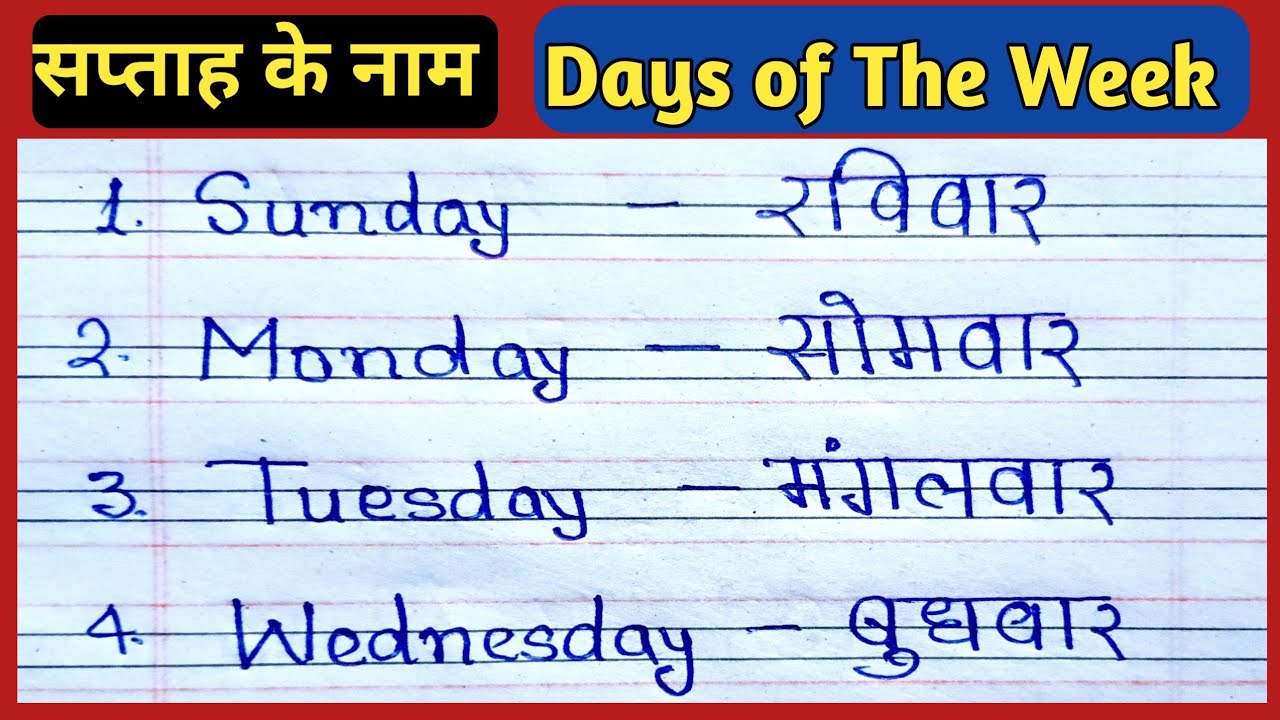 सप्ताह के नाम
Days of The Week
1. Sunday - रविवार
2. Monday - सोमवार
3. Tuesday - मंगलवार
4. Wednesday - बुधवार